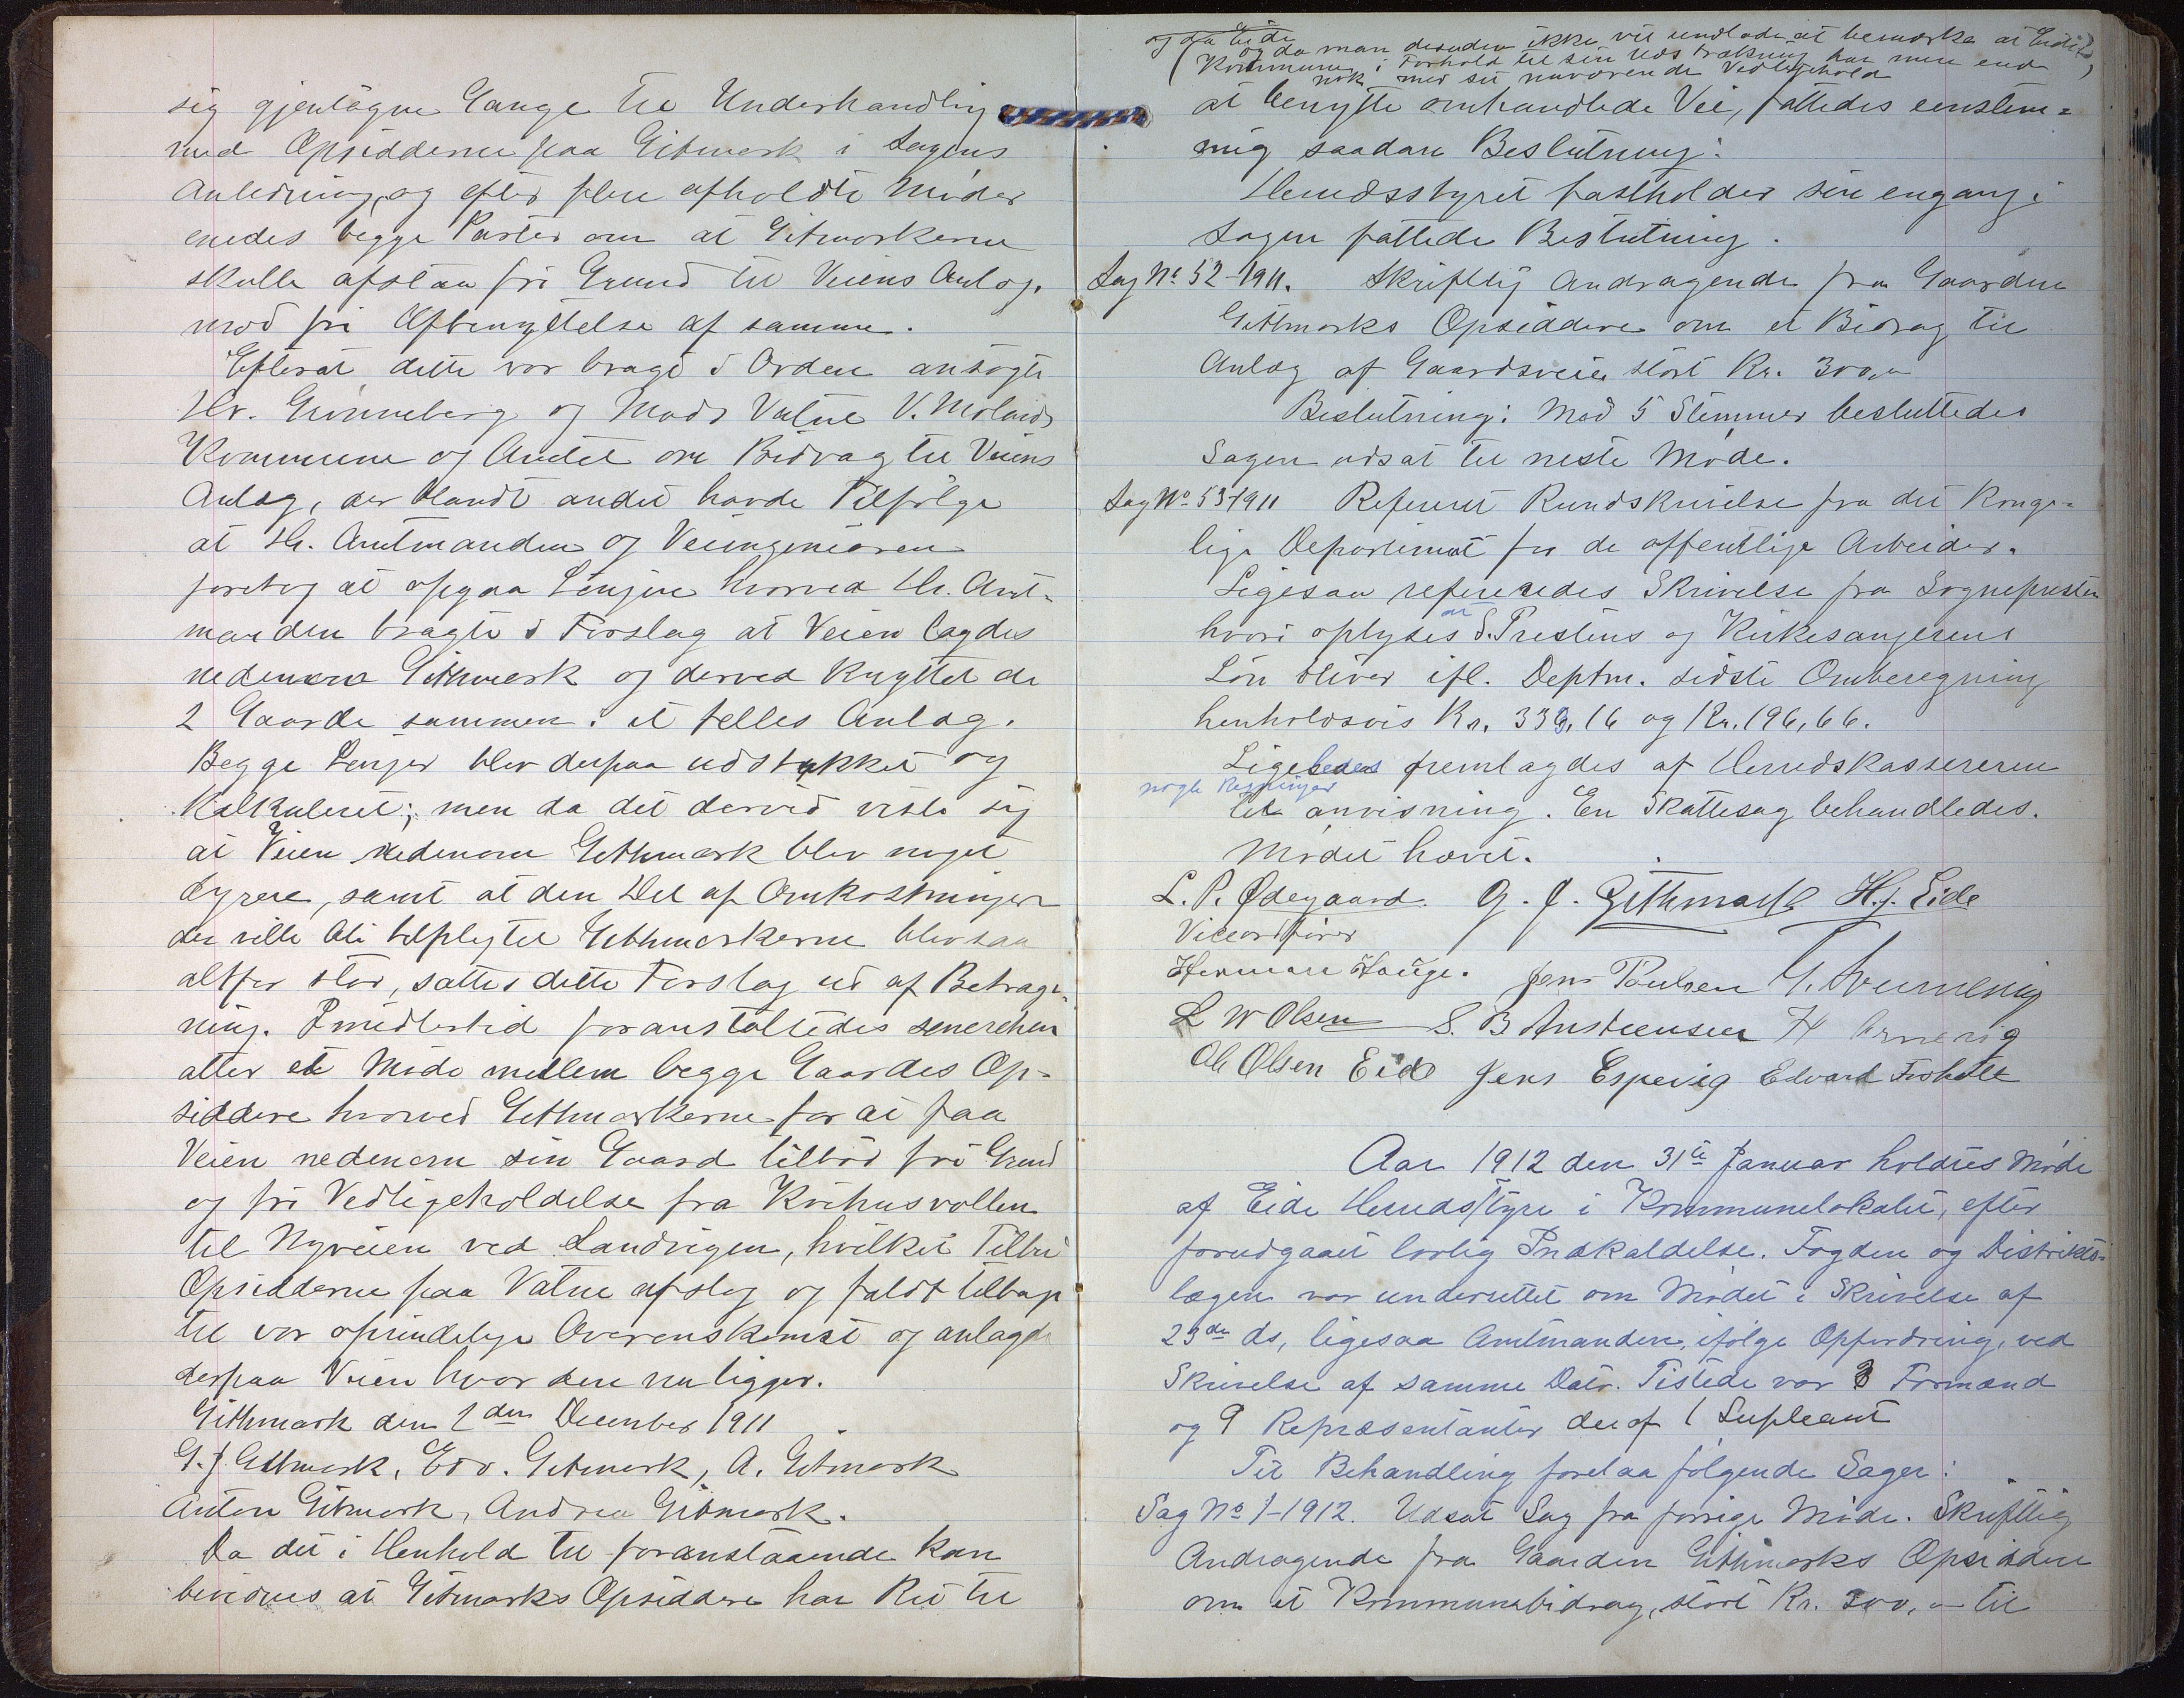 sig gjentagne Gange til Underhandling
med Opsidderne paa Gitmark i Sagens
Anledning, og efter flere afholdte Møder
enedes begge Parter om at Gitmarkerne
skulle afstaa fri Grund til Veiens Anlæg.
mod fri Afbenyttelse af samme.
Efterat dette var bragt i Orden ansøgte
Hr. Grønneberg og Mads Vatne V. Molands
Kommune og Amtet om Bidrag til Veiens
Anlæg, der blandt andet havde Tilfølge
at Hr. Amtmanden og Veiingeniøren
foretog at opgaa Linjen hvorved Hr. Amt-
manden bragte i Forslag at Veien lagdes
nedenom Githmark og derved knyttet de
2 Gaarde sammen i et felles Anlæg.
Begge Linjer blev derpaa udstukket og
kalkuleret; men da det derved viste sig
at Veien nedenom Githmark blev noget
dyrere, samt at den Del af Omkostninger
der ville bli tilplegtet Githmarkerne blev saa
altfor stor, sattes dette Forslag ud af Betragt-
ning. Imidlertid foranstaltedes senerehen
atter et Møde mellem begge Gaardes Op-
siddere hvorved Githmarkerne for at faa
Veien nedenom sin Gaard tilbød fri Grund
og fri Vedligeholdelse fra Kvihusvollen
til Nyveien ved Landvigen, hvilket Tilbu
Opsidderne paa Vatne afslog og faldt tilbage
til vor oprindelige Overenskomst og anlagde
derpaa Veien hvor den nu ligger.
Githmark den 2den December 1911
G. J. Gitmark, Edv. Gitmark, A. Gitmark
Anton Gitmark, Andrea Gitmark.
Da det i Henhold til foranstaaende kan
bevidnes at Gitmarks Opsiddere har Ret til
og da Eide
og da man desuden ikke vil undlade at bemærke at Eide
Kommune i Forhold til sin Udstrækning har mer end
nok med sit nuværende Vedligehold
at benytte omhandlede Vei, fattedes eenstem-
mig saadan Beslutning:
Herredsstyret fastholder sin engang i
Sagen fattede Beslutning.
Sag No 52-1911. Skriftlig Andragende fra Gaarden
Githmarks Opsiddere om et Bidrag til
Anlæg af Gaardsveie stort Kr. 300,-
Beslutning: Mod 5 Stemmer besluttedes
Sagen udsat til neste Møde.
Sag No 53-1911 Referert Rundskrivelse fra det Konge-
lige Departement for de offentlige Arbeider.
Ligesaa refereredes Skrivelse fra Sognepresten
hvori oplyses at S. Prestens og Kirkesangerens
Løn bliver ifl. Deptm. sidste Omberegning
henholdsvis Kr. 333,16 og Kr. 196,66.
Ligeledes fremlagdes af Herredskassereren
nogle Regninger
til anvisning. En Skattesag behandledes.
Mødet hævet.
L. P. Ødegaard. G. J. Githmark H. J. Eide
Viceordfører
Herman Hauge. Jens Poulsen
L W Olsen S. B Anstensen H
Ole Olsen Eide Jens Espevig Edvard Froholt
Aar 1912 den 31te Januar holdtes Møde
af Eide Herredsstyre i Kommunelokalet, efter
forudgaaet lovlig Indkaldelse. Fogden og Distrikts-
lægen var underrettet om Mødet i Skrivelse af
23de ds, ligesaa Amtmanden, ifølge Opfordring, ved
Skrivelse af samme Dato. Tilstede var 3 Formænd
og 9 Repræsentanter deraf 1 Supleant
Til Behandling forelaa følgende Sager:
Sag No 1-1912. Udsat Sag fra forrige Møde. Skriftlig
Andragende fra Gaarden Githmarks Opsiddere
om et Kommunebidrag, stort Kr. 300,- til